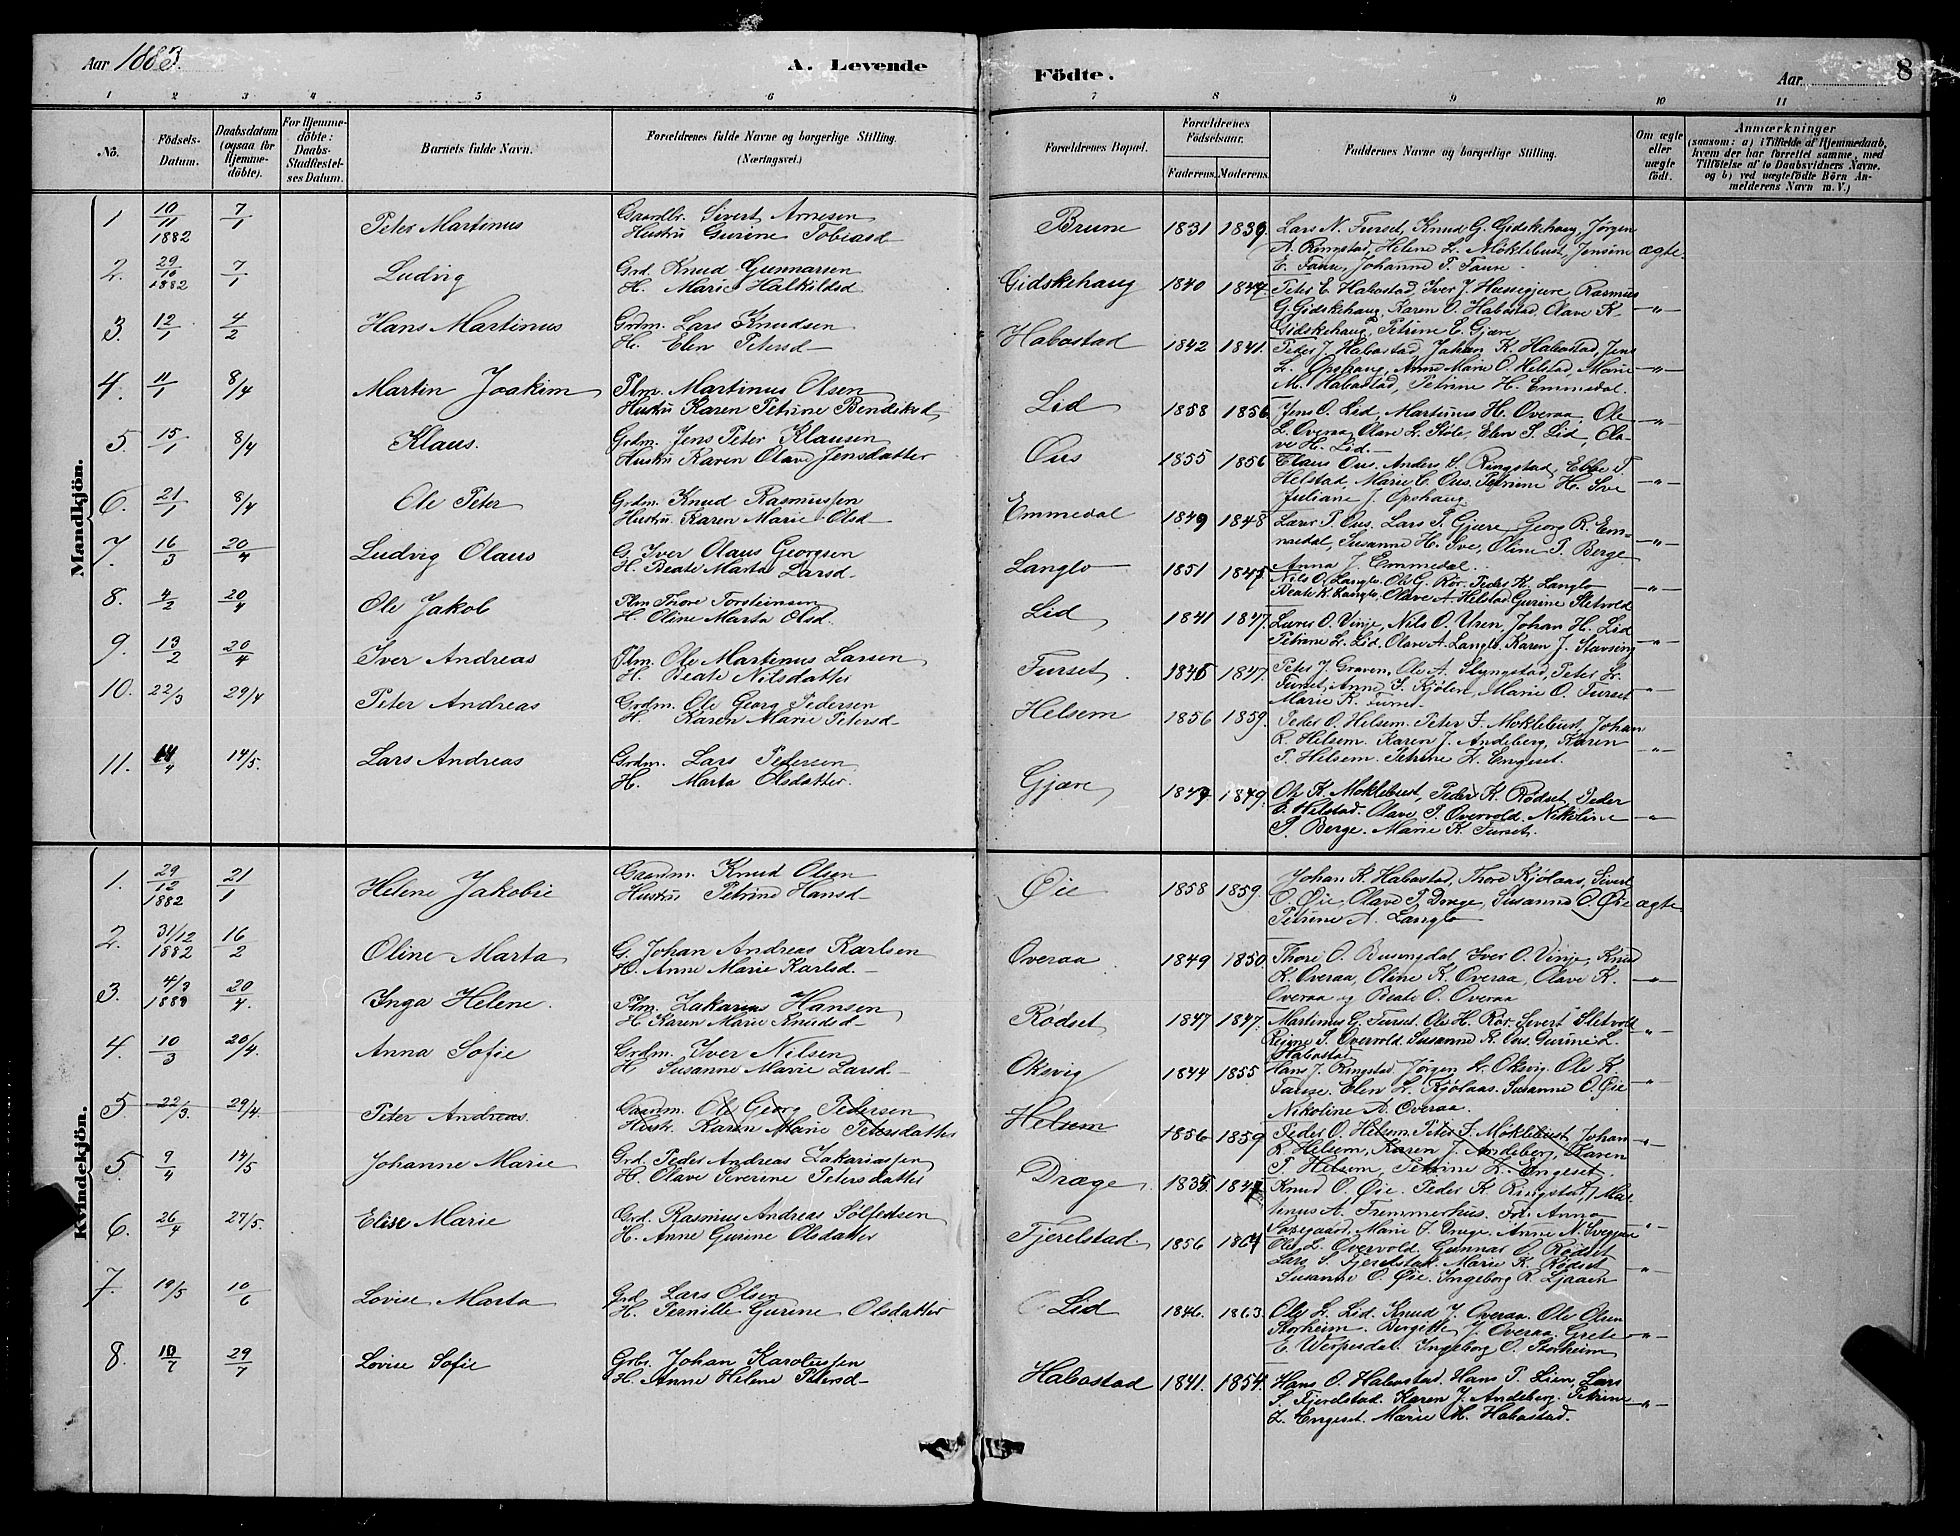 Aar 1883.
A. Levende
Födte.
Aar
8
1 2 3 4 5 6 7 8 9 10 11
No.
Födsels-Datum.
Daabsdatum (ogsaa for Hjemme-döbte).
For Hjemme-döbte: Daabs-Stadfæstel-ses Datum.
Barnets fulde Navn.
Forældrenes fulde Navne og borgerlige Stilling. (Næringsvei.)
Forældrenes Bopæl.
Forældrenes Födselsaar.
Faderens. Moderens.
Faddernes Navne og borgerlige Stilling.
Om ægte eller uægte födt.
Anmærkninger
(saasom: a) i Tilfælde af Hjemmedaab, hvem der har forrettet samme, med Tilföielse af to Daabsvidners Navne. og b) ved uægtefödte Börn An-melderens Navn m. V.)
Mandkjön.
1 10/11 1882 7/1 Peter Martinus Gaardbr. Sivert Arnesen
Hustru Gurine Tobiasd Brune 1831 1839 Lars N. Furset, Knud G. Gidskehaug, Jörgen
A. Ringstad, Helene L. Möklebust, Jensine ægte.
E. Faure, Johanne P. Faure
2. 29/10 1882 7/1 Ludvig Grd. Knud Gunnarsen
H. Marie Halkildsd Gidskehaug 1840 1847 Peter E. Habostad, Iver J. Hussegjure, Rasmus
G. Gidskehaug, Karen O. Habostad, Olave K. -"-
Gidskehaug, Petrine E. Gjære
3. 12/1 4/2 Hans Martinus Grdm. Lars Knudsen
H. Elen Petersd Habostad 1842 1841. Peder J. Habostad, Johan K. Habostad, Jens
L. Opshaug, Anne Marie O. Helstad, Marie -"-
M. Habostad, Petrine H. Emmedal.
4. 11/1 8/4 Martin Joakim Plm. Martinus Olsen
Hustru Karen Petrine Bendiksd Lid 1858 1856 Jens O. Lid, Martinus H. Overaa, Ole
L. Overaa, Olave L. Stöle, Elen S. Lid, Ola- -"-
ve H. Lid.
5 15/1 8/4 Klaus. Grdm. Jens Peter Klausen
Hustru Karen Olave Jensdatter Ous 1855 1856 Claus Ous. Anders S. Ringstad, Ebbe P.
Helstad, Marie C. Ous. Petrine H. Sve -"-
Juliane J. Opshaug
6. 21/1 8/4 Ole Peter Grdm. Knud Rasmussen
Hustru Karen Marie Olsd Emmedal 1849 1848 P. Ous. Lars P. Gjære, Georg R. Em-
medal, Susanne H. Sve, Oline P. Berge -"-
Anna J. Emmedal
7. 16/3 20/4 Ludvig Olaus G. Iver Olaus Georgsen
H. Beate Marta Larsd. Langlo 1851 1845 Nils O. Langlo. Ole G. Rör. Peder K. Langlo
Beate K. Langlo. Olave A. Helstad Gurine Sletvold -"-
8. 4/2 20/4 Ole Jakob Plm Thore Torsteinsen
H. Oline Marta Olsd. Lid 1841 1847. O. Vinje, Nils O. Uren, Johan H. Lid
Petrine L. Lid. Olave A. Langlo. Karen J. Stavseng -"-
9. 13/2 20/4 Iver Andreas Plm. Ole Martinus Larsen
H. Beate Nilsdatter Furset 1846 1847. Peter J. Graven, Ole A. Slyngstad, Peter L.
Furset, Anne I. Kjölen, Marie O. Furset -"-
Marie R. Furset
10. 22/3 29/4 Peter Andreas Grdm. Ole Georg Pedersen
H. Karen Marie Petersd Helsem 1856 1859. Peder O. Helsem. Peter F. Moklebust, Johan
R. Helsem. Karen J. Andeberg, Karen -"-
P. Helsem. Petrine Z. Engeset.
11. 14/4 14/5. Lars Andreas Grdm. Lars Pedersen
H. Marta Olsdatter. Gjære 1847 1849. Ole K. Moklebust, Peder K. Rödset, Peder
E. Helstad. Olave P. Overvold. Nikoline -"-
P. Berge. Marie K. Furset.
Kvindekjön.
1. 29/12 1882 21/1 Helene Jakobie Gaardm. Knud Olsen
Hustru Petrine Hansd Øie 1858 1859. Johan K. Habostad, Thore Kjölaas, Sivert
O. Øie, Olave P. Drage, Susanne O. Øie ægte
Petrine A. Langlo
2. 31/12 1882 16/2 Oline Marta G. Johan Andreas Karlsen
H. Anne Marie Karlsd. Overaa 1849 1850. Thore O. Busengdal Iver O. Vinje, Knud
K. Overaa, Oline K. Overaa, Olave K. -"-
Overaa og Beate O. Overaa
3. 4/3 1883 20/4. Inga Helene. Plm. Zakarias Hansen
H Karen Marie Knudsd Rödset 1847 1847. Martinus G. Furset. Ole H. Rör. Sivert Sletvold
P. Overvold. Susanne K. Ous. Gurine L. "
Habostad
4. 10/3 20/4. Anna Sofie Grdm. Iver Nilsen
H Susanne Marie Larsd Oksvig 1844 1855 Hans J. Ringstad. Jörgen L. Oksvig. Ole K.
Faure. Elen L. Kjölaas. Susanne O. Øie -"-
Nikoline A. Overaa.
5 22/3. 29/4. Peter Andreas. Gaardm. Ole Georg Pedersen
Hustr. Karen Marie Petersdatter Helsem 1856 1859 Peder O. Helsem. Peter F. Moklebust, Johan -"-
R. Helsem, Karen J. Andeberg, Karen
P. Helsem, Petrine Z. Engeset.
5. 9/4 14/5 Johanne Marie Grd. Peder Andreas Zakariassen
H. Olave Severine Petersdatter Drage 1835 1847 Knud O. Øie. Peder K. Ringstad, Mar
tinus A. Fremmerhus. Anna
Marie I. Drage. Anne N. "-
6. 26/4 27/5. Elise Marie Grd. Rasmus Andreas Solfedsen
H. Anne Gurine Olsdatter Fjerelstad. 1856 1864 Ole L. Overvold. Gunnar O. Rödset
Lars S. Fjerelstad. Marie K. Rödset -"-
Susanne O. Øie. Ingeborg R. Ljaaen
7. 19/5 10/6 Lovise Marta Grd. Lars Olsen
H. Pernille Gurine Olsdatter Lid 1846. 1863. Ole L. Lid. Knud J. Overaa. Ole Olsen
Storheim. Bergitte J. Overaa. Grete -"-
E. Ingeborg O. Storheim
8. 10/7 29/7 Lovise Sofie Grbr. Johan Karolussen
H. Anne Helene Petersd Habostad 1841. 1854. Hans O. Habostad. Hans P. Lien, Lars
S. Fjerelstad. Karen J. Andeberg. Petrine -"-
Z. Engeset. Marie M. Habostad.